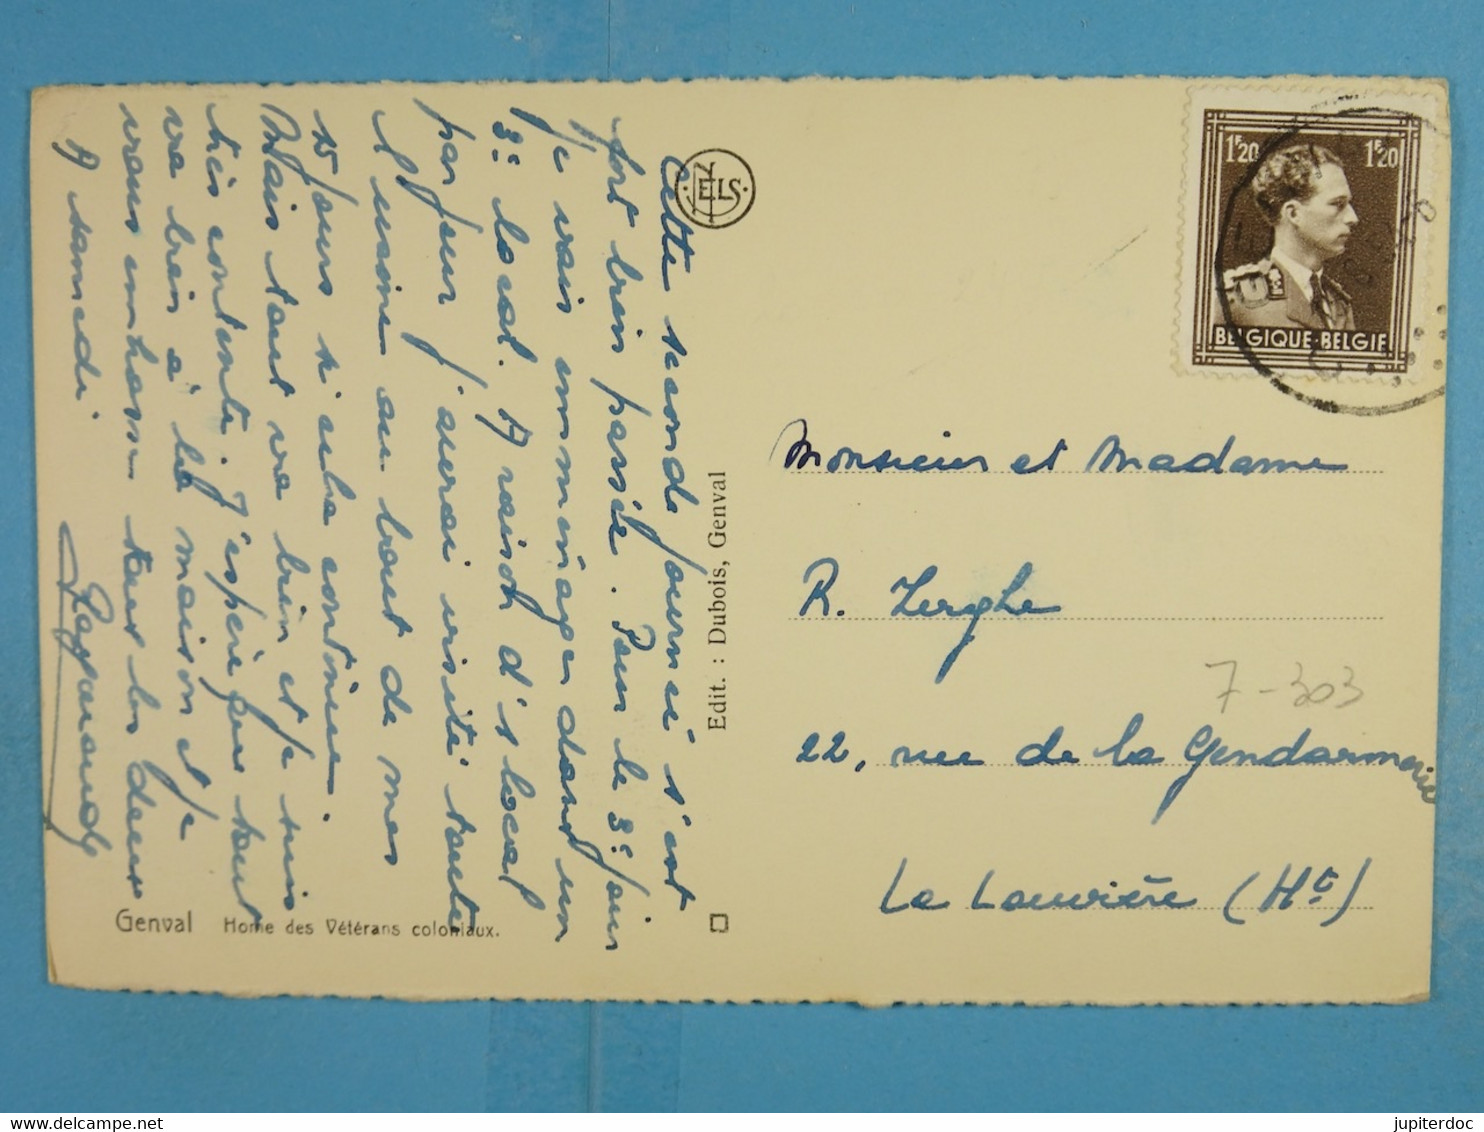 Cette seconde journée s'est
fort bien passée. Pour le 3e jour
je vais emménager dans un
3e local. A raison d'1 local
par jour j'aurai visité toute
l'usine au bout de mes
15 jours si cela continue.
Mais tout va bien et je suis
très contente. J'espère que tout
va bien à la maison et je
vous embrasse tous les deux
A samedi
NELS
Edit. : Dubois, Genval
Genval Home des Vétérans coloniaux.
1F20 1F20
BELGIQUE·BELGIE
Monsieur et Madame
R. Zerghe
7-303
22, rue de la Gendarmerie
La Louvière (Ht)
delcampe.net
jupiterdoc